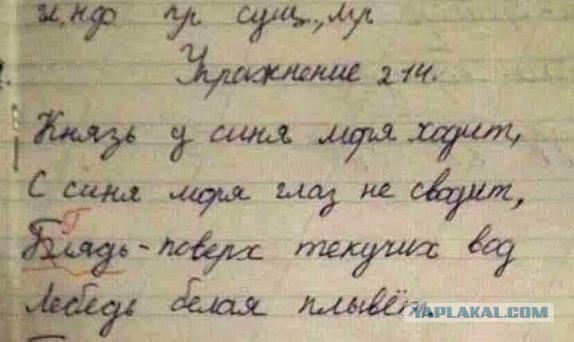 и,нф пр сущ., мр
Упражнение 214.
Князь у синя моря ходит,
С синя моря глаз не сводит,
Г
Блядь - поверх текучих вод
Лебедь белая плывёт.
YAPLAKAL.COM